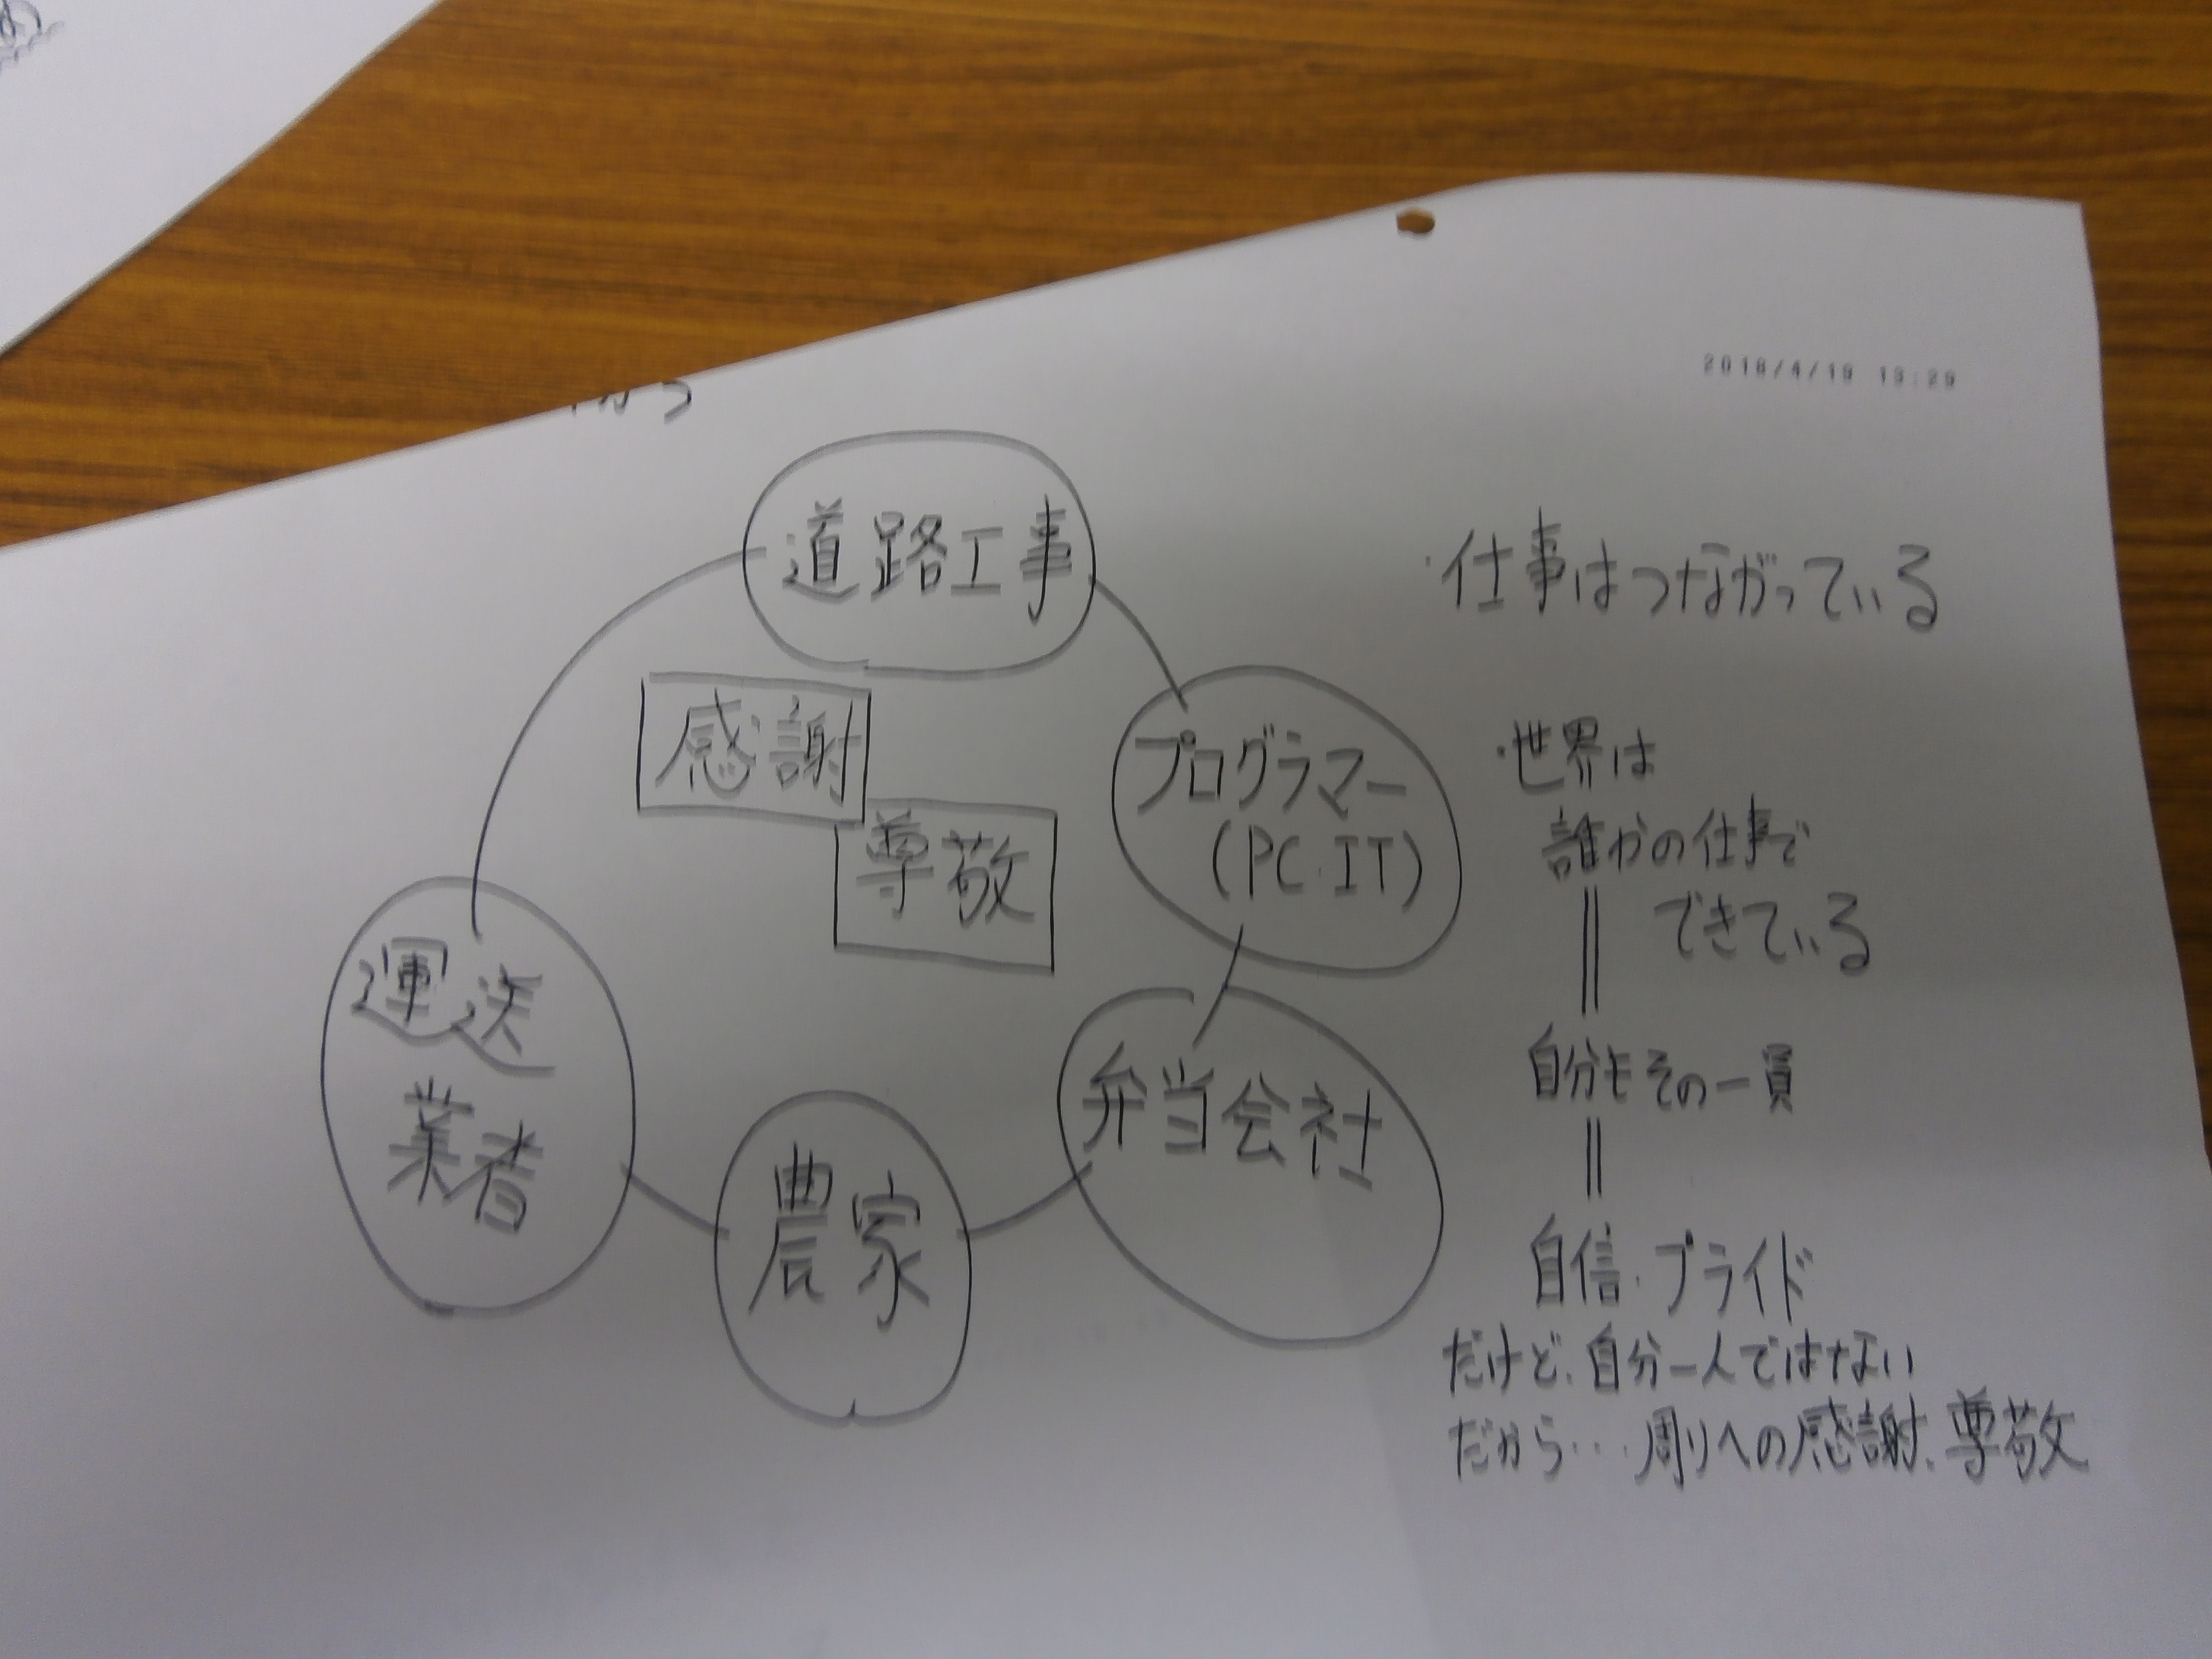 2018/4/19 13:29
道路工事
・仕事はつながっている
感謝
尊敬
プログラマー
(PC・IT)
・世界は
誰かの仕事で
できている
運送
業者
弁当会社
自分もその一員
農家
自信・プライド
だけど、自分一人ではない
だから… 周りへの感謝、尊敬